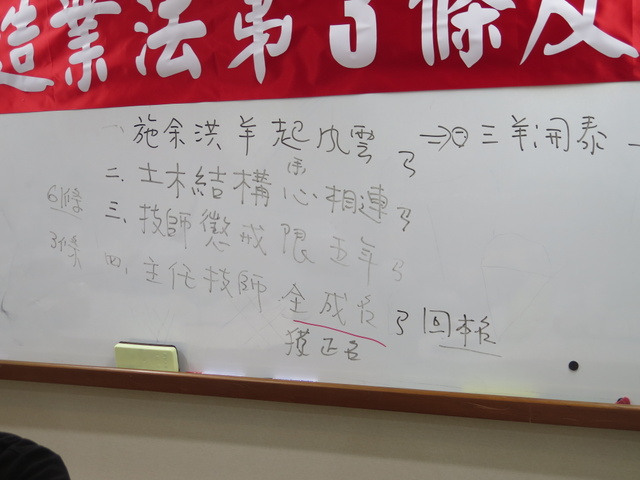 造業法第3條及
一、施余洪羊起風雲 ㄋ → 三羊開泰
二、土木結構心相連 ㄋ
6條 三、技師懲戒限五年 ㄋ
3條 四、主任技師全成名 ㄋ 回本名
獲正名